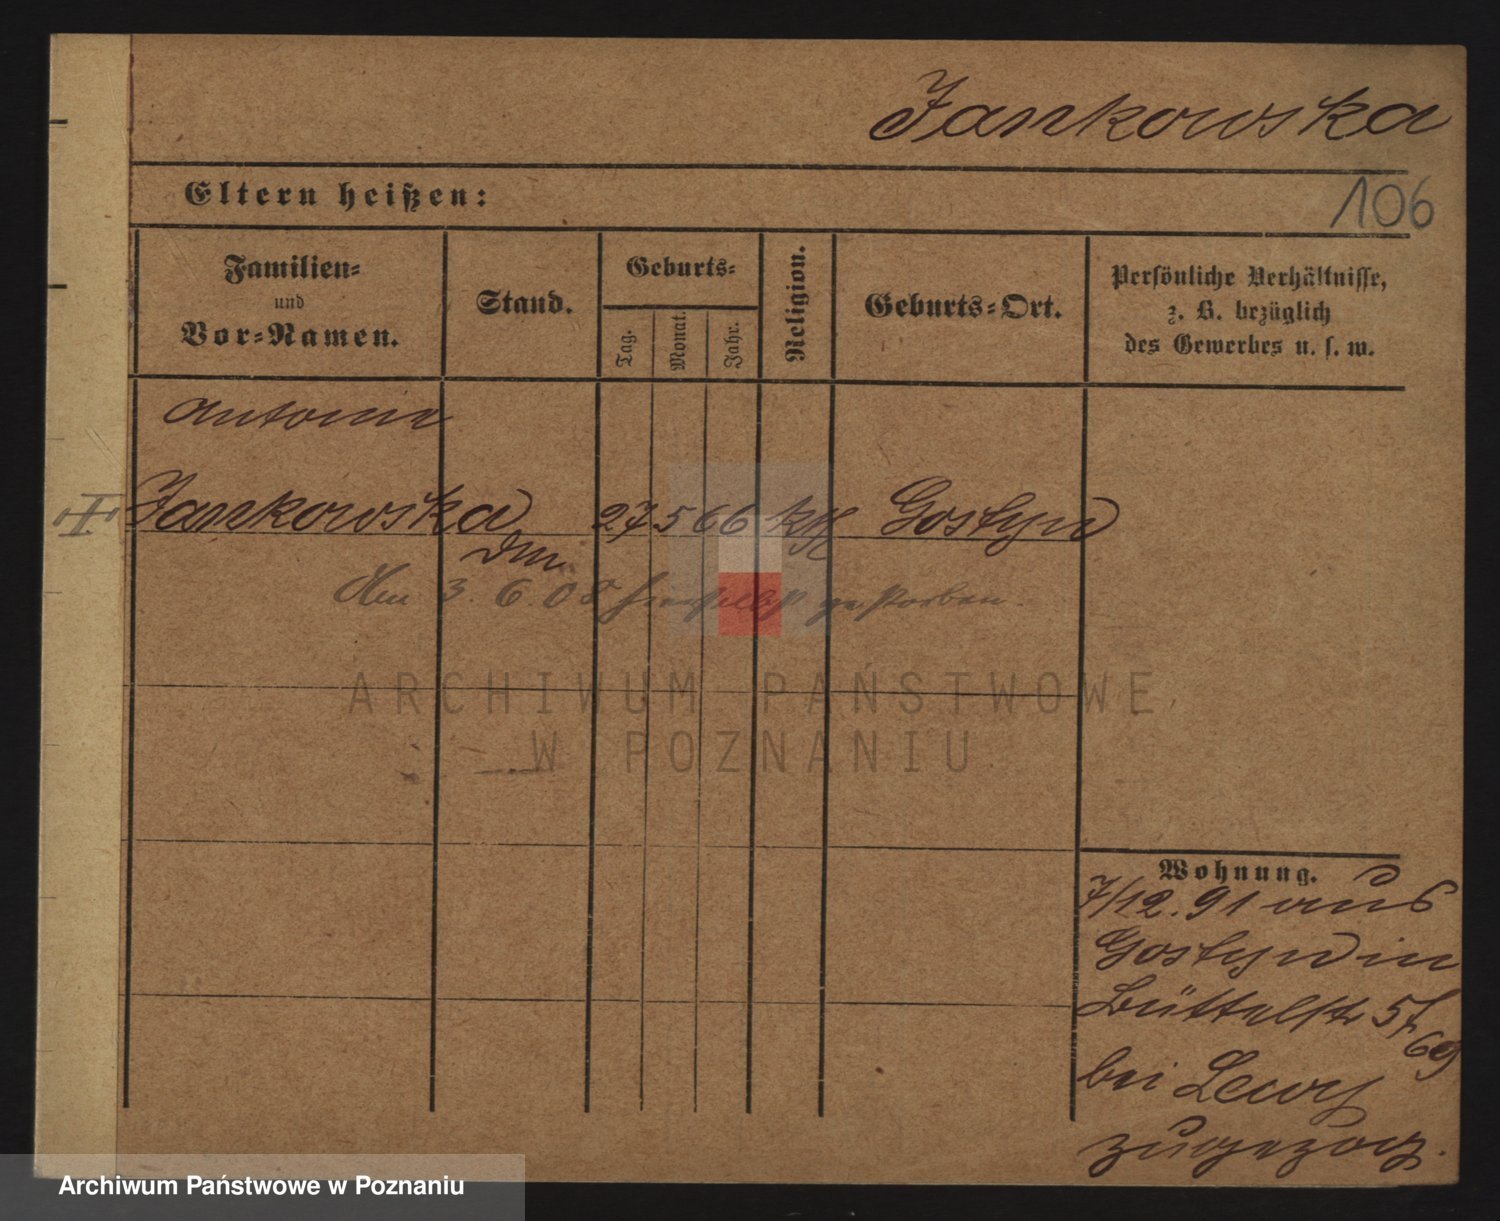 Jankowska
Eltern heißen:
106
Familien-
und
Vor-Namen.
Stand.
Geburts-
Tag.
Monat.
Jahr.
Religion.
Geburts-Ort.
Persönliche Verhältnisse,
z. B. bezüglich
des Gewerbes u. s. w.
Antonie
Jankowska 27 5 66 kth Gostyn
Dm.
Am 3. 6. 08 hierselbst gestorben.
ARCHIWUM PAŃSTWOWE
W POZNANIU
Wohnung.
7/12. 91 aus
Gostyn in
Büttelstr
bei Lewy
zugezog.
Archiwum Państwowe w Poznaniu